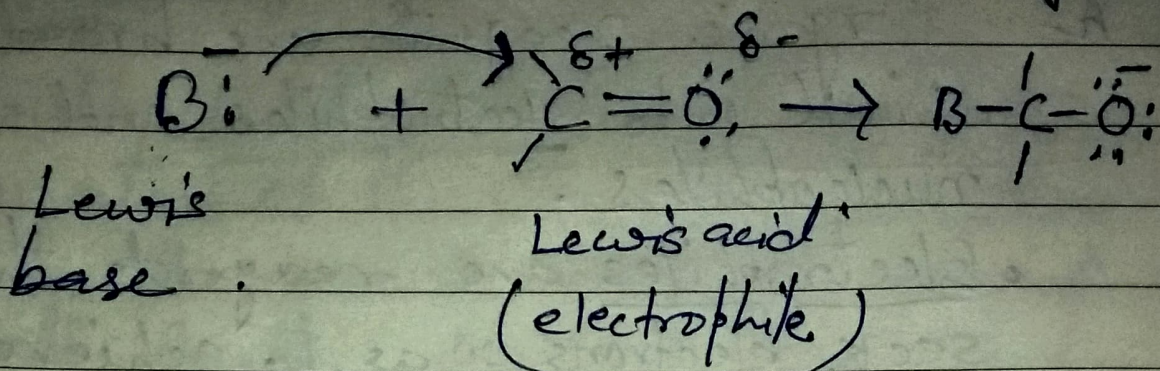 δ+ δ-
B:⁻ + C=O → B-C-O:⁻
Lewis
base .
Lewis acid
(electrophile)